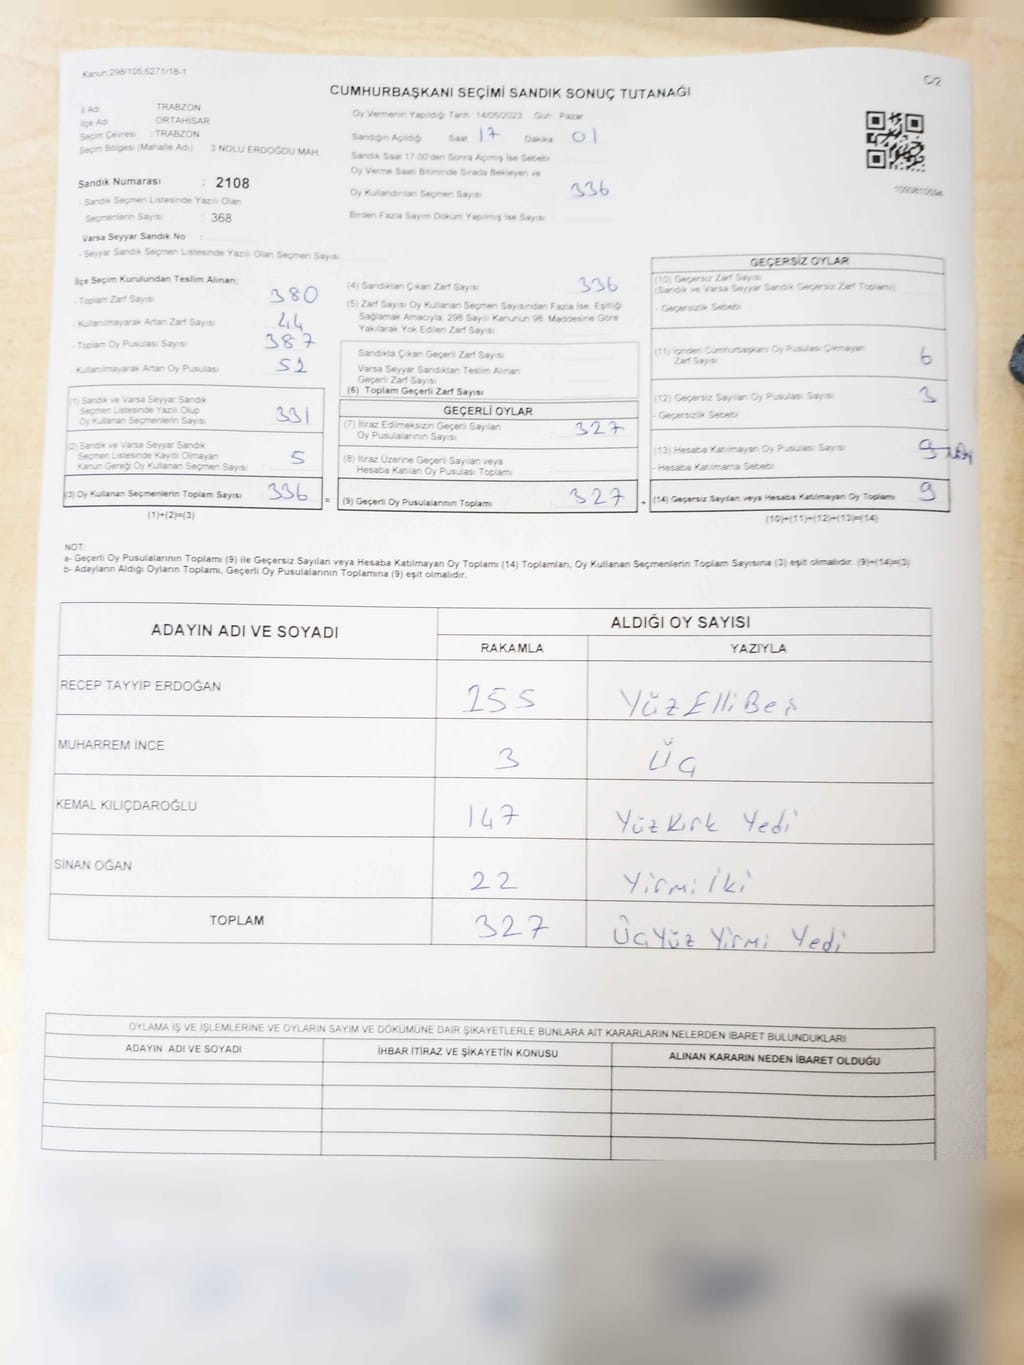 Kanun:298/105;6271/18-1
C/2
CUMHURBAŞKANI SEÇİMİ SANDIK SONUÇ TUTANAĞI
İl Adı TRABZON
İlçe Adı ORTAHİSAR
Seçim Çevresi : TRABZON
Seçim Bölgesi (Mahalle Adı) 3 NOLU ERDOĞDU MAH.
Sandık Numarası : 2108
- Sandık Seçmen Listesinde Yazılı Olan
Seçmenlerin Sayısı : 368
Varsa Seyyar Sandık No :
- Seyyar Sandık Seçmen Listesinde Yazılı Olan Seçmen Sayısı
Oy Vermenin Yapıldığı Tarih 14/05/2023 Gün Pazar
Sandığın Açıldığı Saat 17 Dakika 01
Sandık Saat 17.00'den Sonra Açılmış İse Sebebi
Oy Verme Saati Bitiminde Sırada Bekleyen ve
Oy Kullandırılan Seçmen Sayısı 336
Birden Fazla Sayım Döküm Yapılmış İse Sayısı
İlçe Seçim Kurulundan Teslim Alınan;
- Toplam Zarf Sayısı 380
- Kullanılmayarak Artan Zarf Sayısı 44
- Toplam Oy Pusulası Sayısı 387
- Kullanılmayarak Artan Oy Pusulası 51
(1) Sandık ve Varsa Seyyar Sandık
Seçmen Listesinde Yazılı Olup
Oy Kullanan Seçmenlerin Sayısı 331
(2) Sandık ve Varsa Seyyar Sandık
Seçmen Listesinde Kayıtlı Olmayan
Kanun Gereği Oy Kullanan Seçmen Sayısı 5
(3) Oy Kullanan Seçmenlerin Toplam Sayısı 336 =
(1)+(2)=(3)
(4) Sandıktan Çıkan Zarf Sayısı 336
(5) Zarf Sayısı Oy Kullanan Seçmen Sayısından Fazla İse, Eşitliği
Sağlamak Amacıyla, 298 Sayılı Kanunun 98. Maddesine Göre
Yakılarak Yok Edilen Zarf Sayısı
Sandıkla Çıkan Geçerli Zarf Sayısı
Varsa Seyyar Sandıktan Teslim Alınan
Geçerli Zarf Sayısı
(6) Toplam Geçerli Zarf Sayısı
GEÇERLİ OYLAR
(7) İtiraz Edilmeksizin Geçerli Sayılan
Oy Pusulalarının Sayısı 327
(8) İtiraz Üzerine Geçerli Sayılan veya
Hesaba Katılan Oy Pusulası Toplamı
(9) Geçerli Oy Pusulalarının Toplamı 327 +
GEÇERSİZ OYLAR
(10) Geçersiz Zarf Sayısı
(Sandık ve Varsa Seyyar Sandık Geçersiz Zarf Toplamı)
- Geçersizlik Sebebi
(11) İçinden Cumhurbaşkanı Oy Pusulası Çıkmayan
Zarf Sayısı 6
(12) Geçersiz Sayılan Oy Pusulası Sayısı 3
- Geçersizlik Sebebi
(13) Hesaba Katılmayan Oy Pusulası Sayısı 9
- Hesaba Katılmama Sebebi
(14) Geçersiz Sayılan veya Hesaba Katılmayan Oy Toplamı 9
(10)+(11)+(12)+(13)=(14)
NOT:
a- Geçerli Oy Pusulalarının Toplamı (9) ile Geçersiz Sayılan veya Hesaba Katılmayan Oy Toplamı (14) Toplamları, Oy Kullanan Seçmenlerin Toplam Sayısına (3) eşit olmalıdır. (9)+(14)=(3)
b- Adayların Aldığı Oyların Toplamı, Geçerli Oy Pusulalarının Toplamına (9) eşit olmalıdır.
ADAYIN ADI VE SOYADI ALDIĞI OY SAYISI
RAKAMLA YAZIYLA
RECEP TAYYİP ERDOĞAN 155 Yüz Elli Beş
MUHARREM İNCE 3 Üç
KEMAL KILIÇDAROĞLU 147 Yüz Kırk Yedi
SİNAN OĞAN 22 Yirmi İki
TOPLAM 327 Üçyüz Yirmi Yedi
OYLAMA İŞ VE İŞLEMLERİNE VE OYLARIN SAYIM VE DÖKÜMÜNE DAİR ŞİKAYETLERLE BUNLARA AİT KARARLARIN NELERDEN İBARET BULUNDUKLARI
ADAYIN ADI VE SOYADI İHBAR İTİRAZ VE ŞİKAYETİN KONUSU ALINAN KARARIN NEDEN İBARET OLDUĞU